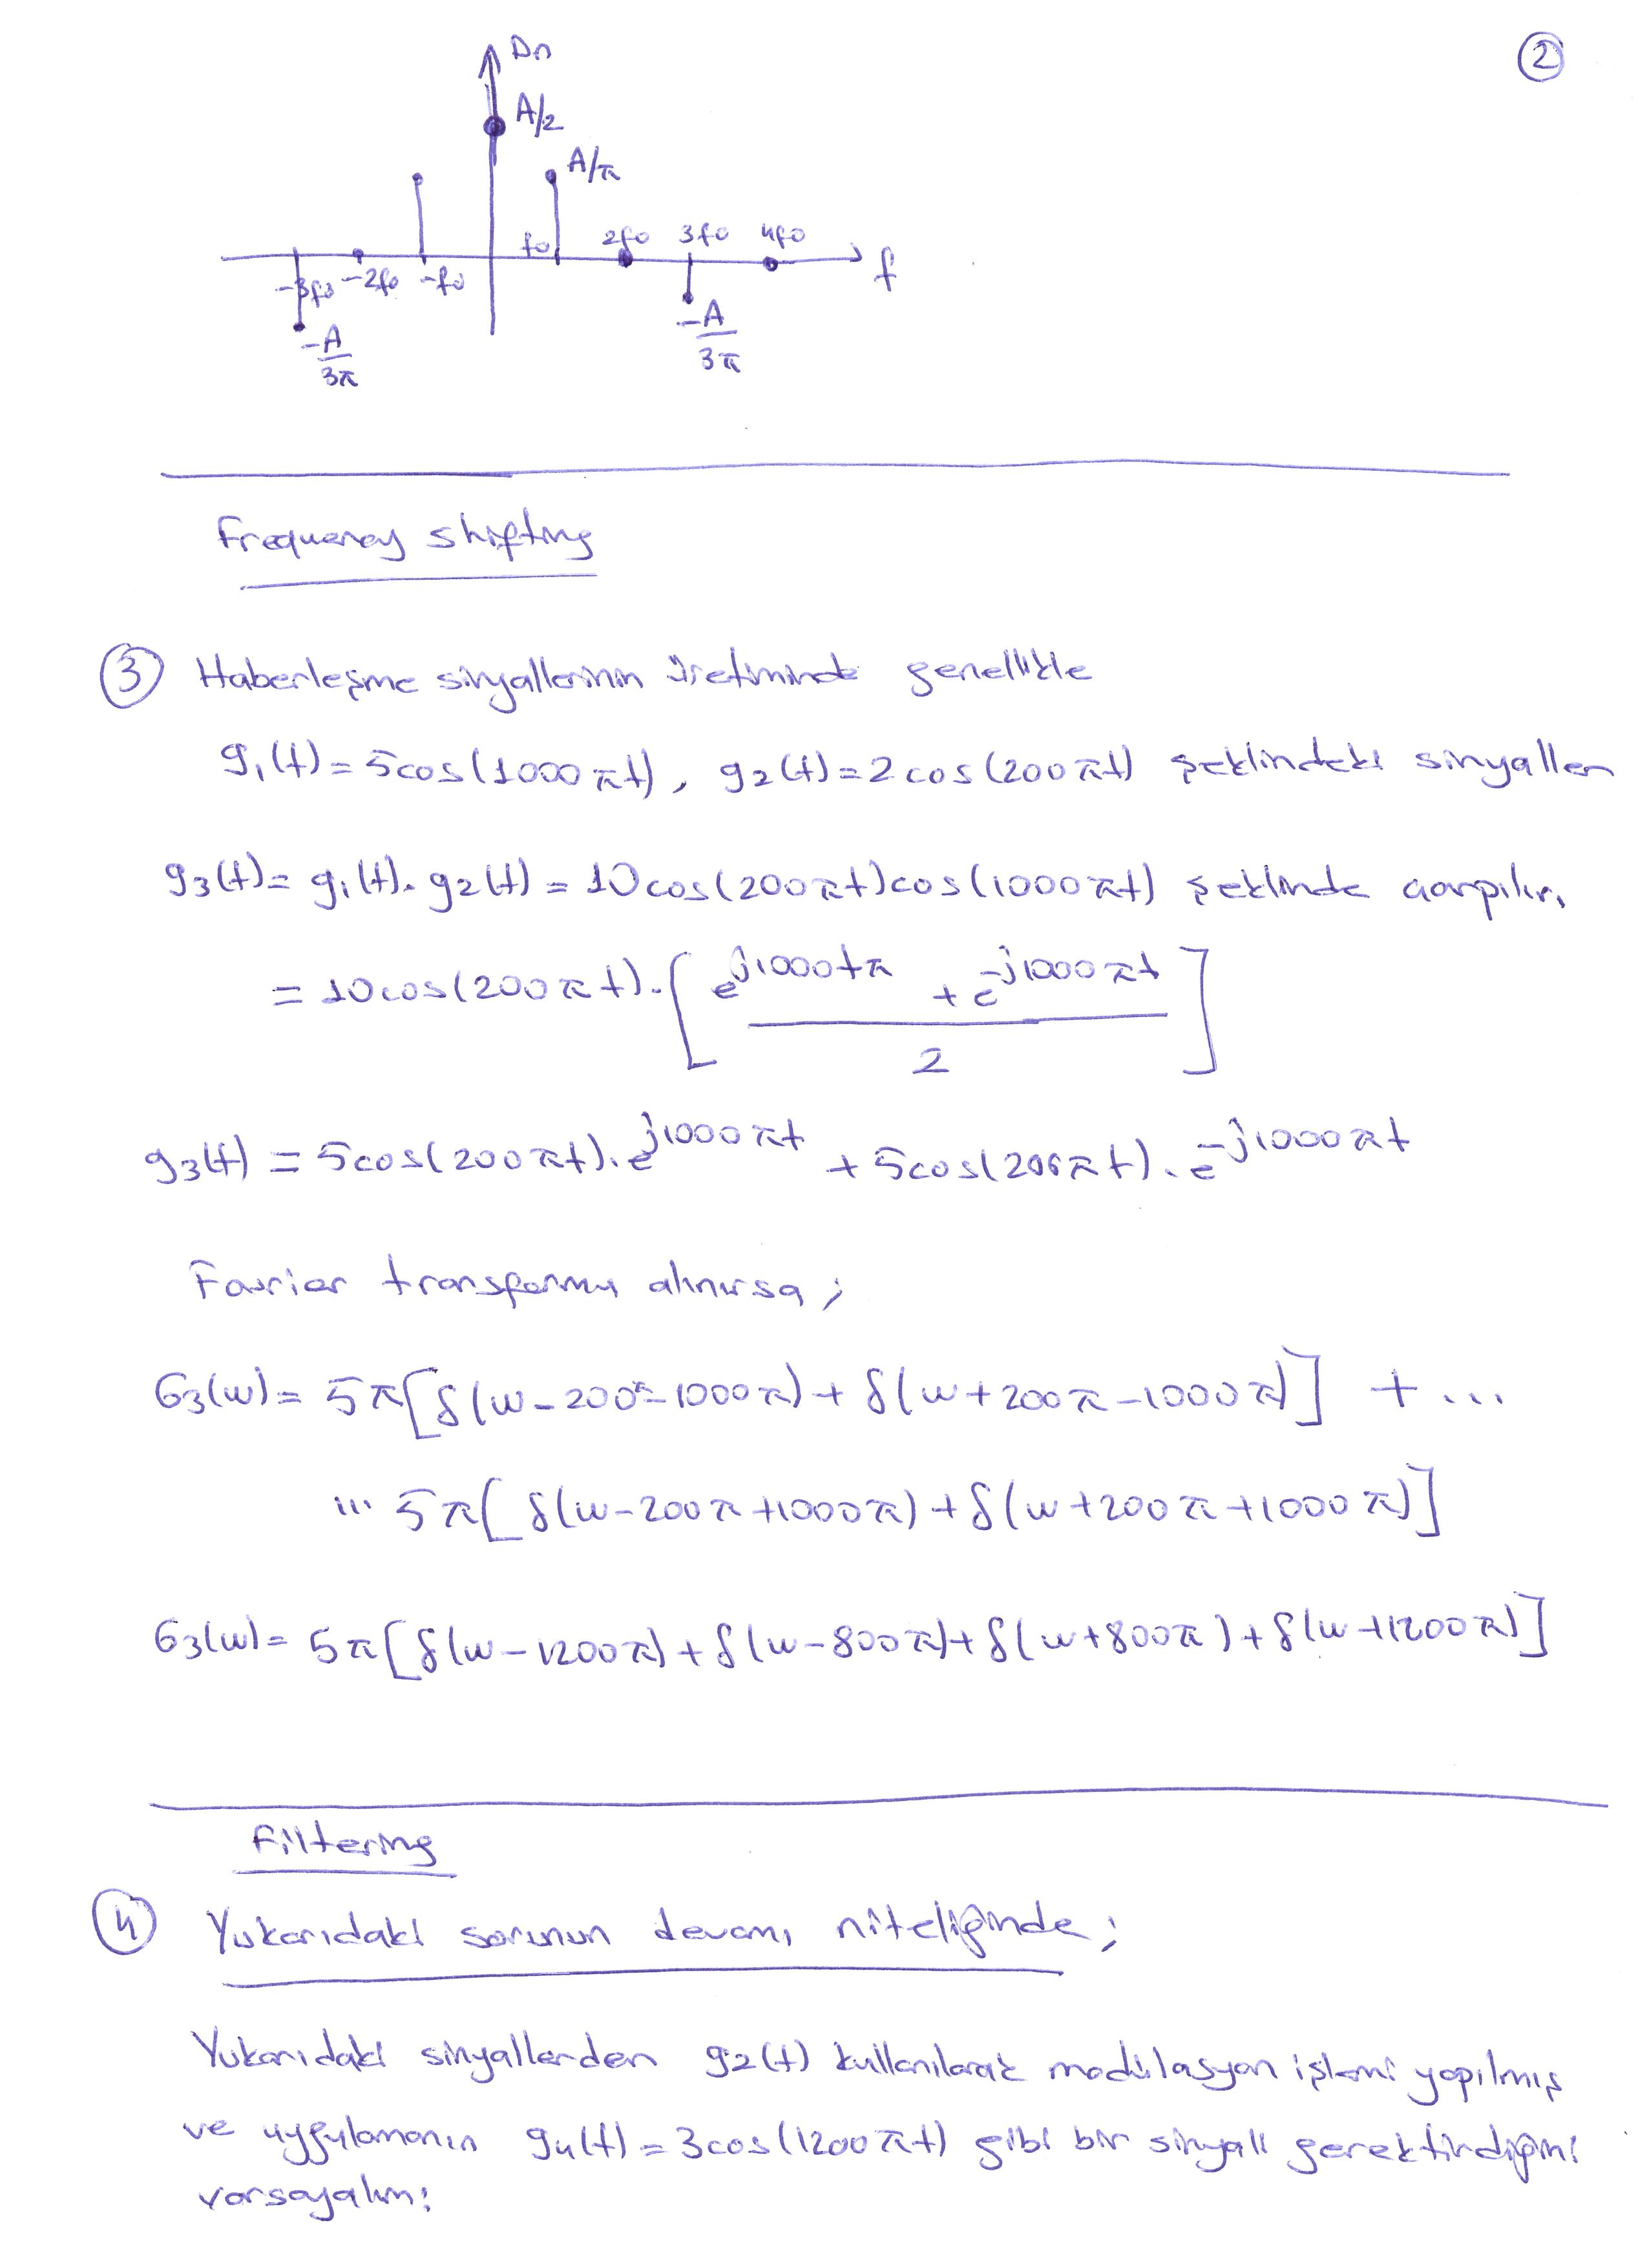 2
Dn
A/2
A/π
f0 2f0 3f0 4f0
f
-3f0 -2f0 -f0
-A/3π
-A/3π
Frequency shifting
3 Haberleşme sinyallerinin üretiminde genellikle
g1(t) = 5cos(1000πt), g2(t) = 2cos(200πt) şeklindeki sinyaller
g3(t) = g1(t).g2(t) = 10cos(200πt)cos(1000πt) şeklinde çarpılır.
= 10cos(200πt).[(e^j1000tπ + e^-j1000πt)/2]
g3(t) = 5cos(200πt).e^j1000πt + 5cos(200πt).e^-j1000πt
Fourier transformu alınırsa;
G3(w) = 5π[δ(w-200π-1000π) + δ(w+200π-1000π)] + ...
... 5π[δ(w-200π+1000π) + δ(w+200π+1000π)]
G3(w) = 5π[δ(w-1200π) + δ(w-800π) + δ(w+800π) + δ(w+1200π)]
Filtering
4 Yukarıdaki sorunun devamı niteliğinde;
Yukarıdaki sinyallerden g2(t) kullanılarak modülasyon işlemi yapılmış
ve uygulamanın g4(t) = 3cos(1200πt) gibi bir sinyali gerektirdiğini
varsayalım: